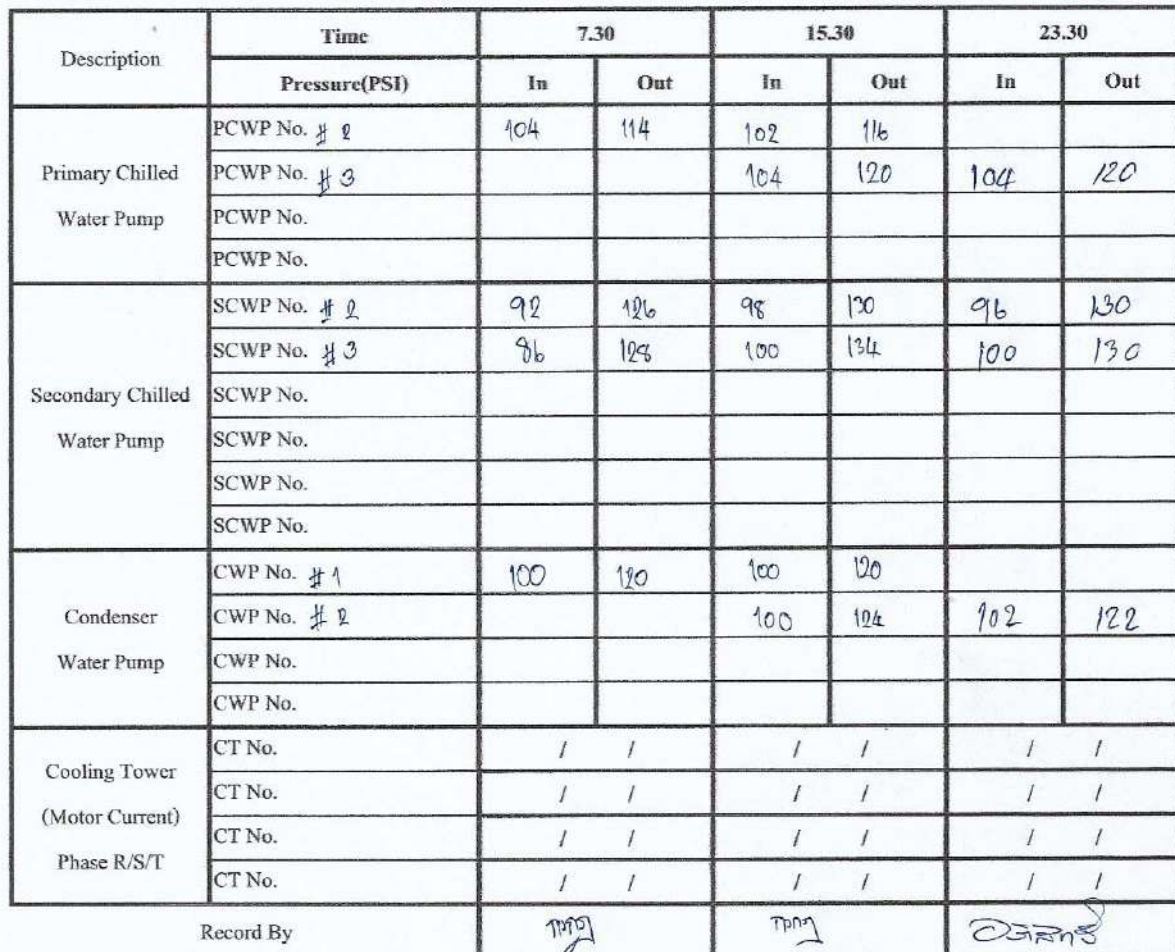 Description Time 7.30 15.30 23.30
Pressure(PSI) In Out In Out In Out
Primary Chilled Water Pump
PCWP No. # 2 104 114 102 116
PCWP No. # 3 104 120 104 120
PCWP No.
PCWP No.
Secondary Chilled Water Pump
SCWP No. # 2 92 126 98 130 96 130
SCWP No. # 3 86 128 100 134 100 130
SCWP No.
SCWP No.
SCWP No.
SCWP No.
Condenser Water Pump
CWP No. # 1 100 120 100 120
CWP No. # 2 100 124 102 122
CWP No.
CWP No.
Cooling Tower (Motor Current) Phase R/S/T
CT No. / / / / / /
CT No. / / / / / /
CT No. / / / / / /
CT No. / / / / / /
Record By